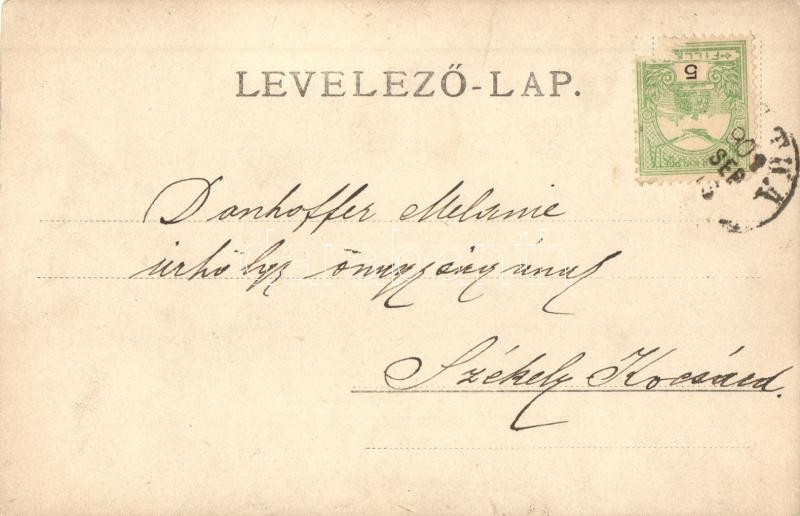 LEVELEZŐ-LAP.
5
FILLÉR
SEP
Donhoffer Melanie
úrhölgy őnagyságának
Székely Kocsárd.